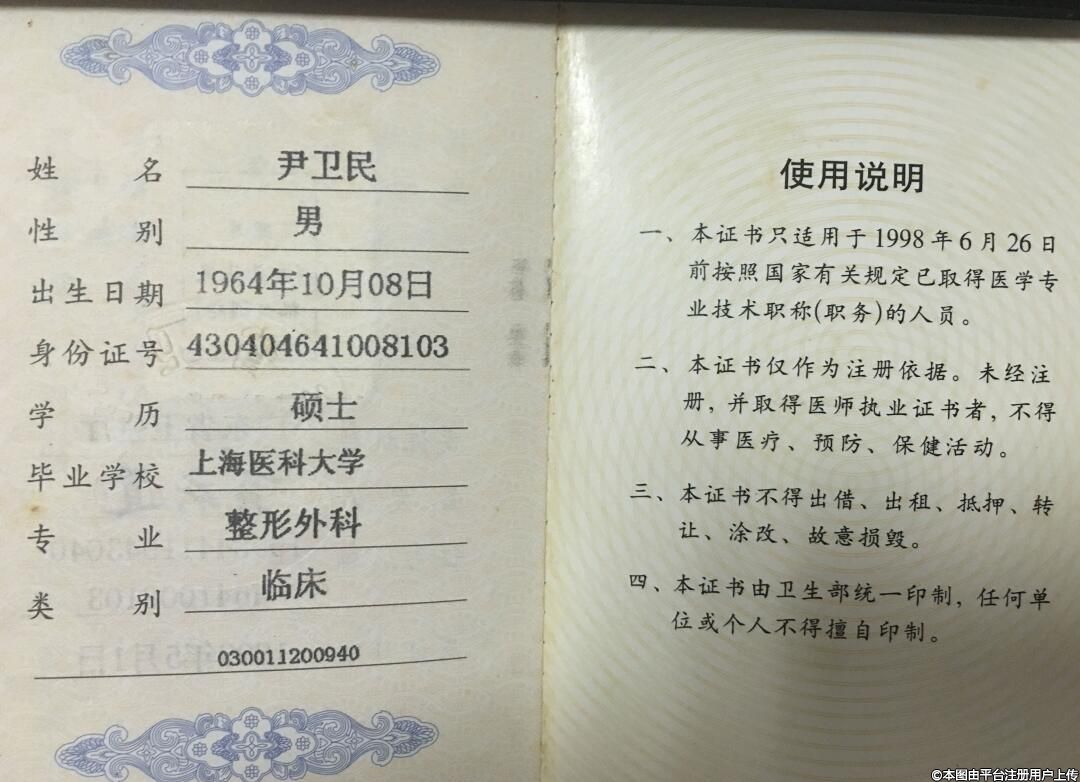 姓名 尹卫民
性别 男
出生日期 1964年10月08日
身份证号 430404641008103
学历 硕士
毕业学校 上海医科大学
专业 整形外科
类别 临床
030011200940
使用说明
一、本证书只适用于1998年6月26日
前按照国家有关规定已取得医学专
业技术职称(职务)的人员。
二、本证书仅作为注册依据。未经注
册,并取得医师执业证书者,不得
从事医疗、预防、保健活动。
三、本证书不得出借、出租、抵押、转
让、涂改、故意损毁。
四、本证书由卫生部统一印制,任何单
位或个人不得擅自印制。
©本图由平台注册用户上传